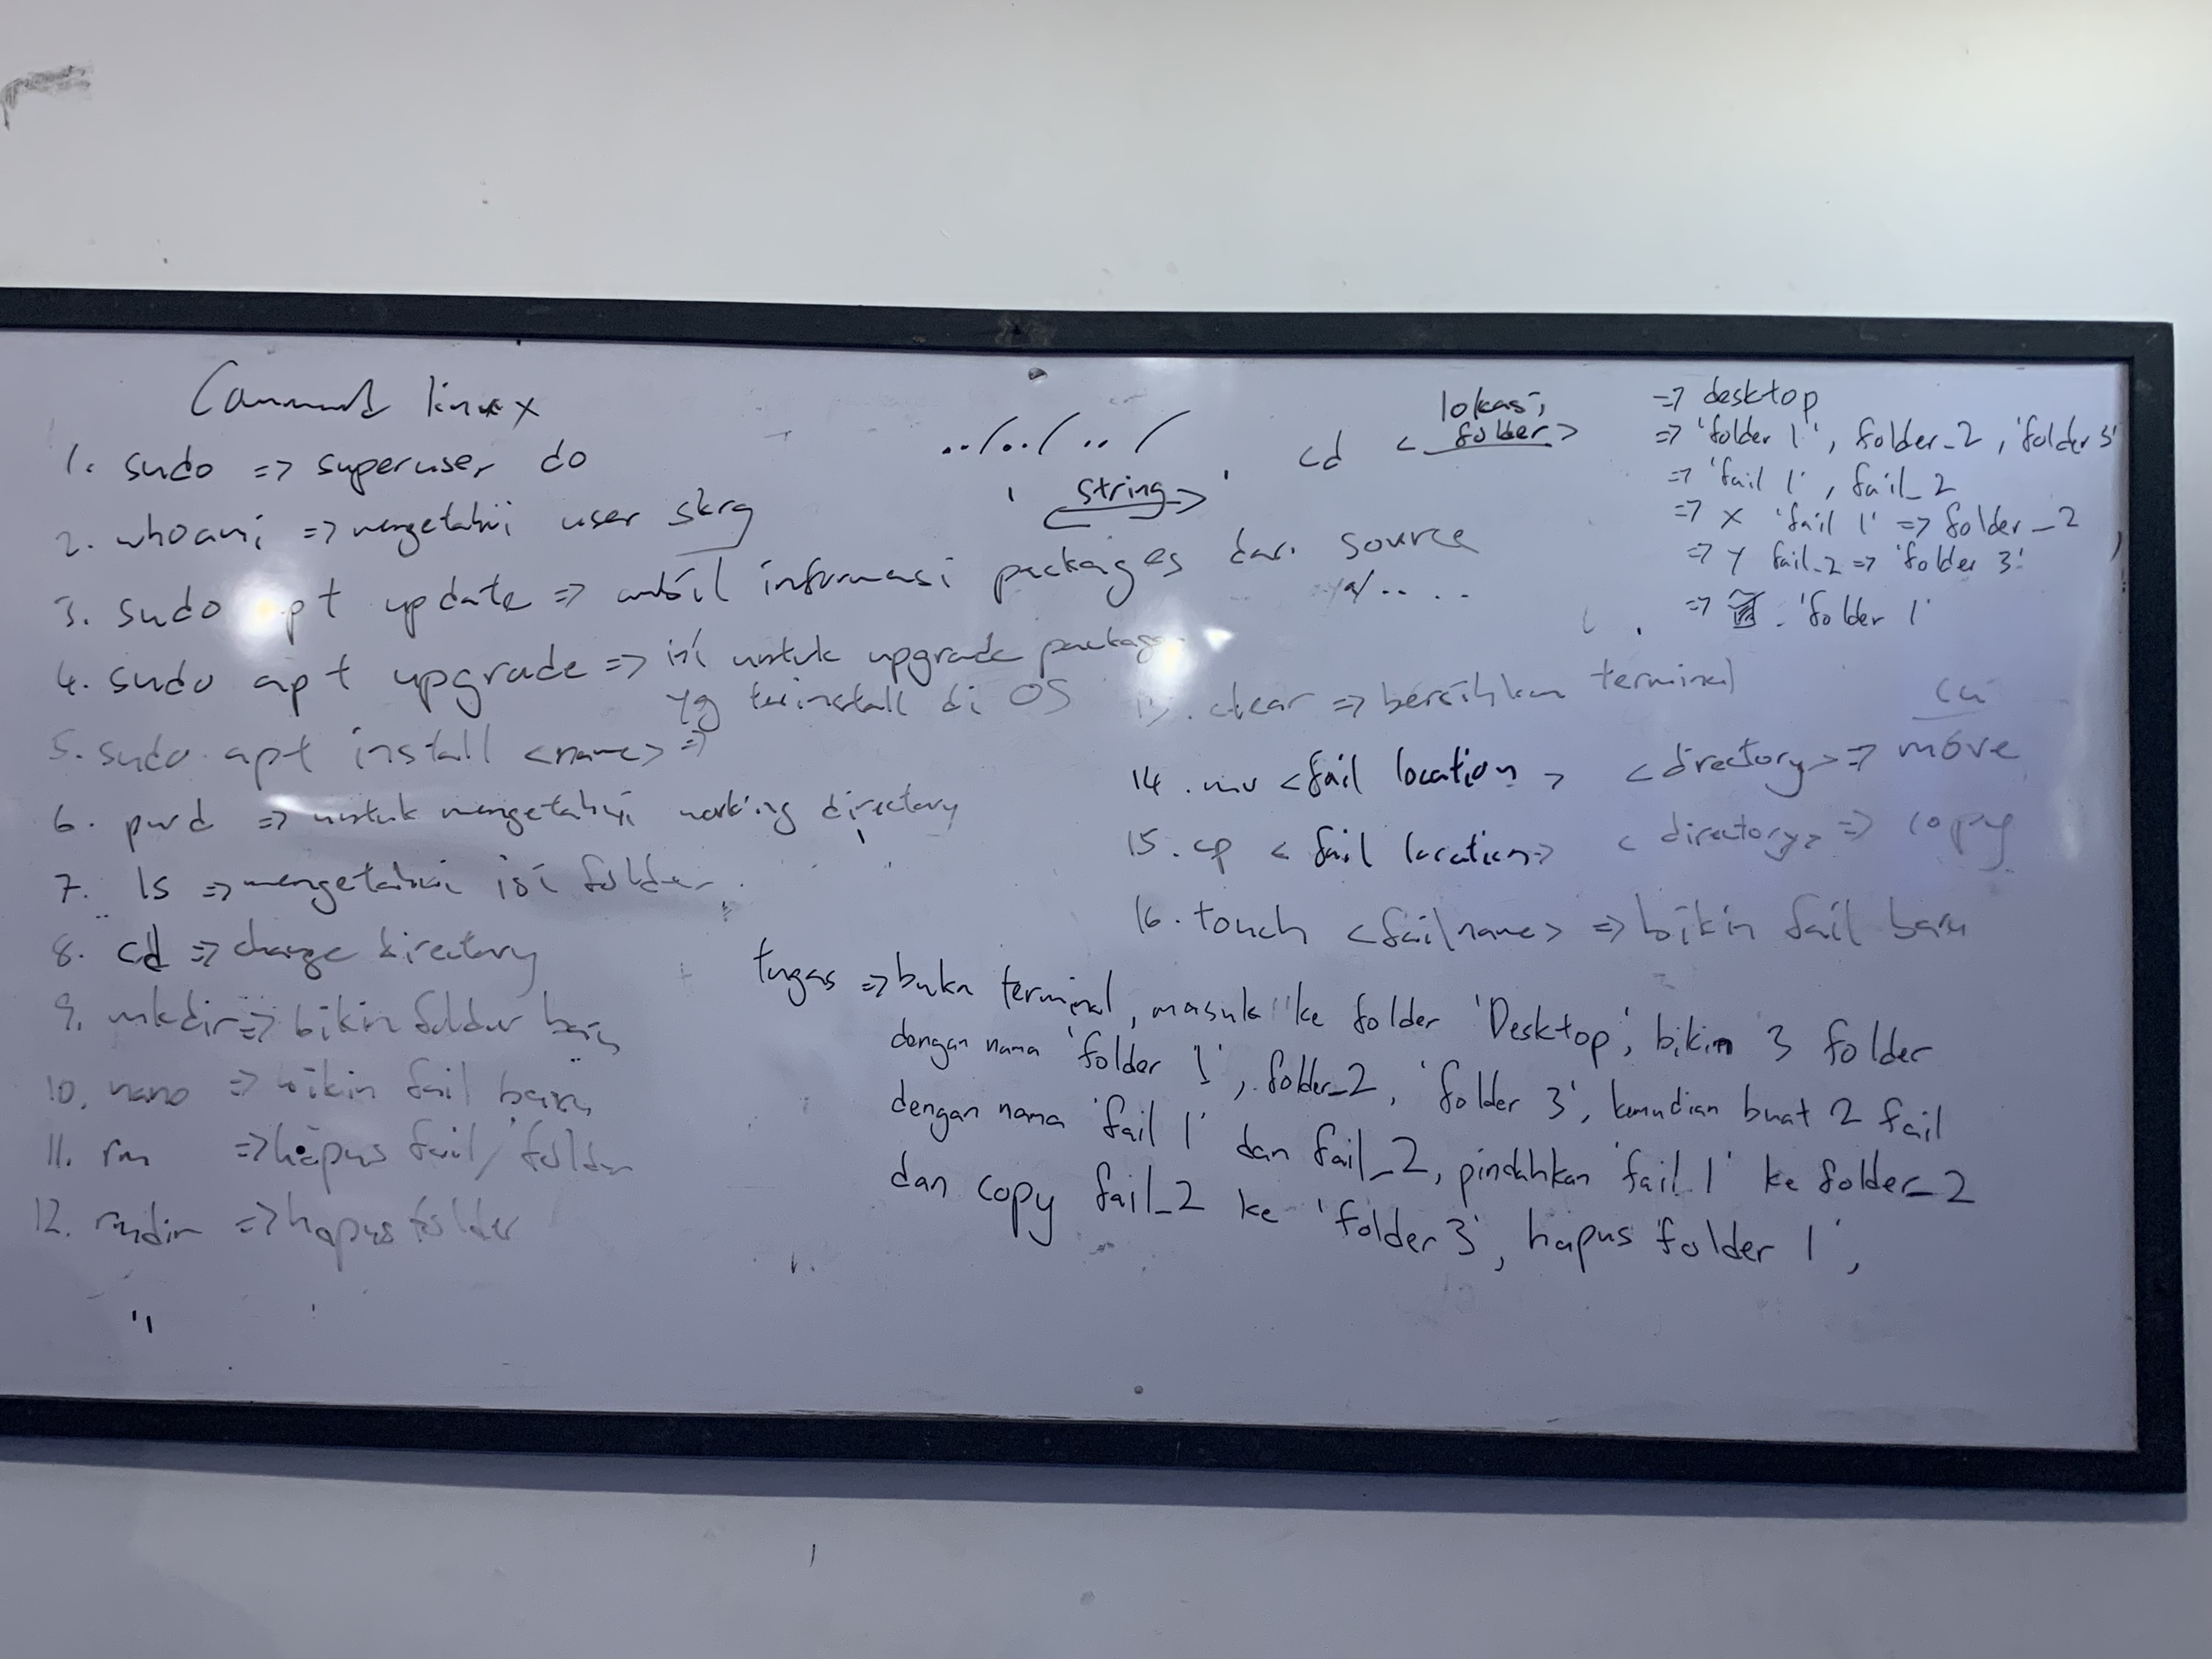 Command linux
1. sudo => superuser do
2. whoami => mengetahui user skrg
3. sudo apt update => ambil informasi packages dari source
4. sudo apt upgrade => ini untuk upgrade package
yg terinstall di OS
5. sudo apt install <name> =>
6. pwd => untuk mengetahui working directory
7. ls => mengetahui isi folder
8. cd => change directory
9. mkdir => bikin folder baru
10. nano => bikin fail baru
11. rm => hapus fail/folder
12. rmdir => hapus folder
../../../
' <string> '
cd <lokasi folder>
=> desktop
=> 'folder 1', folder_2, 'folder 3'
=> 'fail 1', fail_2
=> x 'fail 1' => folder_2
=> y fail_2 => 'folder 3'
=> 'folder 1'
13. clear => bersihkan terminal
14. mv <fail location> <directory> => move
15. cp <fail location> <directory> => copy
16. touch <failname> => bikin fail baru
tugas => buka terminal, masuk ke folder 'Desktop', bikin 3 folder
dengan nama 'folder 1', folder_2, 'folder 3', kemudian buat 2 fail
dengan nama 'fail 1' dan fail_2, pindahkan 'fail 1' ke folder_2
dan copy fail_2 ke 'folder 3', hapus 'folder 1',